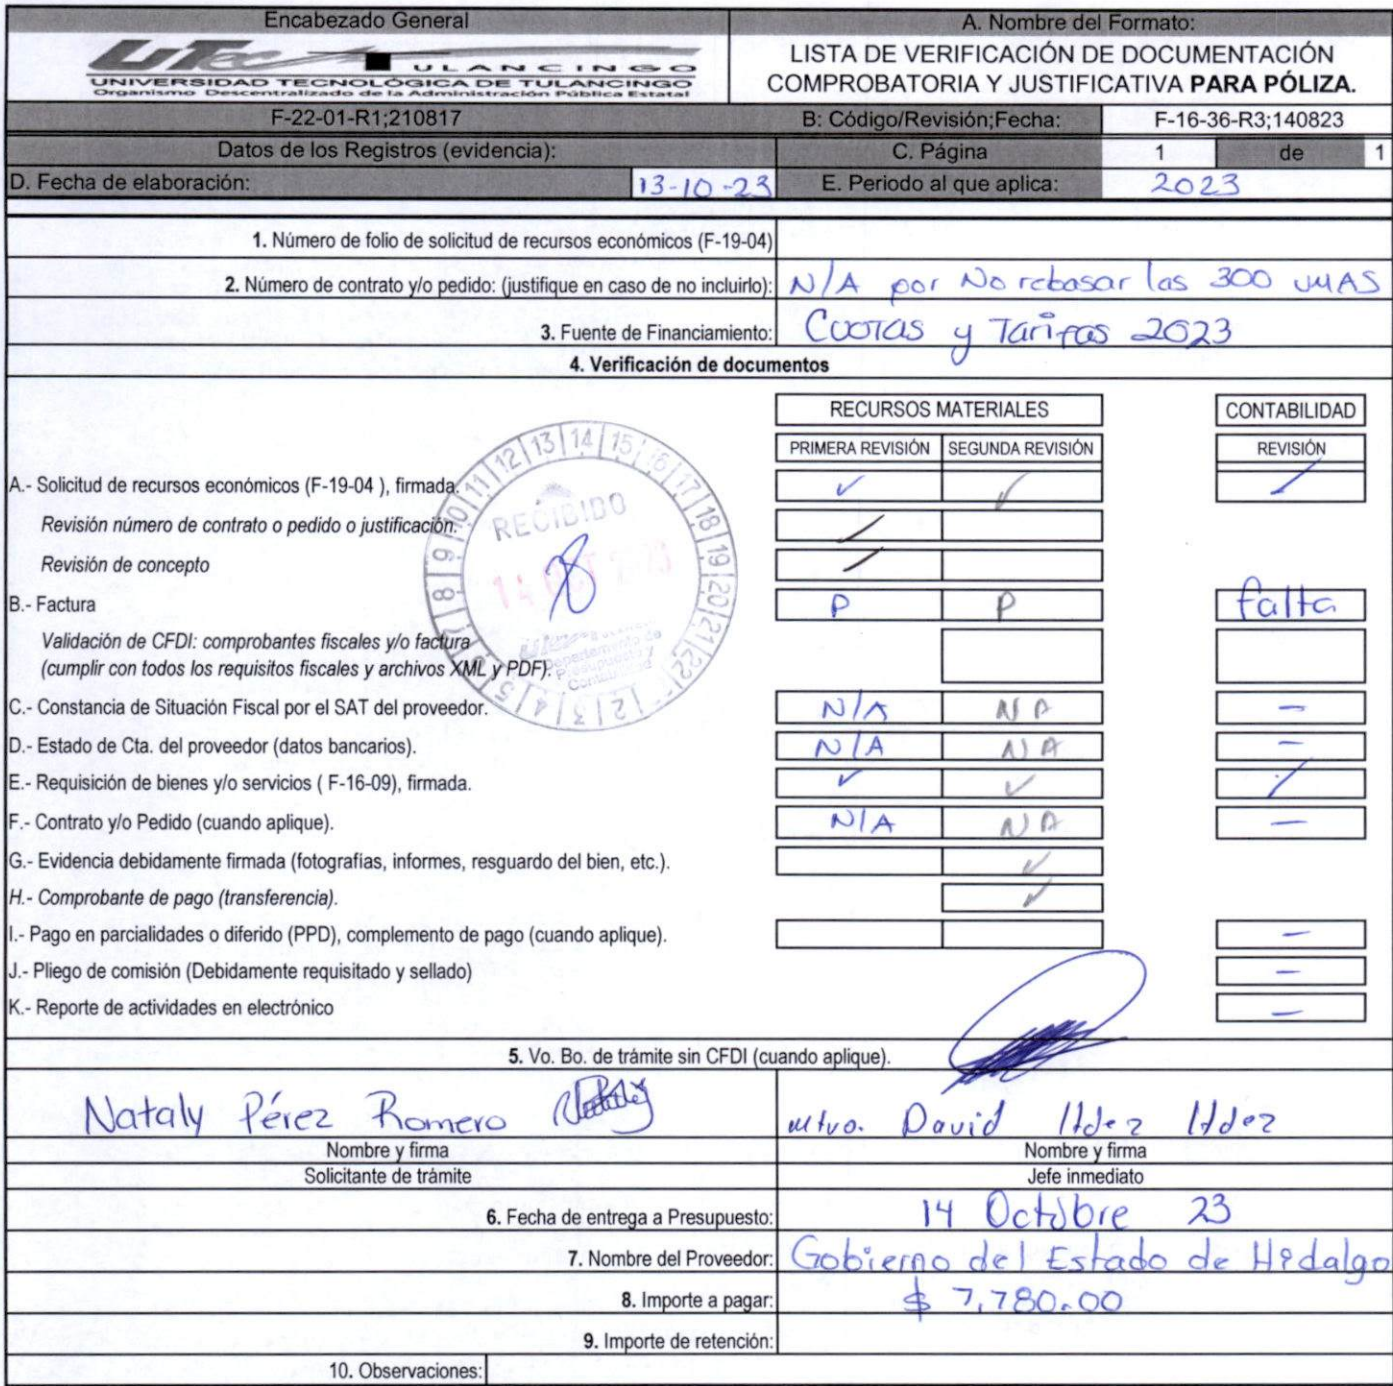 Encabezado General
A. Nombre del Formato:
UTec TULANCINGO
UNIVERSIDAD TECNOLÓGICA DE TULANCINGO
Organismo Descentralizado de la Administración Pública Estatal
LISTA DE VERIFICACIÓN DE DOCUMENTACIÓN
COMPROBATORIA Y JUSTIFICATIVA PARA PÓLIZA.
F-22-01-R1;210817
B: Código/Revisión;Fecha: F-16-36-R3;140823
Datos de los Registros (evidencia):
C. Página 1 de 1
D. Fecha de elaboración: 13-10-23
E. Periodo al que aplica: 2023
1. Número de folio de solicitud de recursos económicos (F-19-04)
2. Número de contrato y/o pedido: (justifique en caso de no incluirlo): N/A por No rebasar las 300 UMAS
3. Fuente de Financiamiento: Cuotas y Tarifas 2023
4. Verificación de documentos
RECURSOS MATERIALES CONTABILIDAD
PRIMERA REVISIÓN SEGUNDA REVISIÓN REVISIÓN
A.- Solicitud de recursos económicos (F-19-04 ), firmada. ✓ ✓ /
Revisión número de contrato o pedido o justificación. /
Revisión de concepto /
B.- Factura P P falta
Validación de CFDI: comprobantes fiscales y/o factura
(cumplir con todos los requisitos fiscales y archivos XML y PDF).
C.- Constancia de Situación Fiscal por el SAT del proveedor. N/A NA —
D.- Estado de Cta. del proveedor (datos bancarios). N/A NA —
E.- Requisición de bienes y/o servicios ( F-16-09), firmada. ✓ ✓ /
F.- Contrato y/o Pedido (cuando aplique). N/A NA —
G.- Evidencia debidamente firmada (fotografías, informes, resguardo del bien, etc.). ✓
H.- Comprobante de pago (transferencia). ✓
I.- Pago en parcialidades o diferido (PPD), complemento de pago (cuando aplique). —
J.- Pliego de comisión (Debidamente requisitado y sellado) —
K.- Reporte de actividades en electrónico —
RECIBIDO
14 OCT 2023
Departamento de
Presupuesto y
Contabilidad
5. Vo. Bo. de trámite sin CFDI (cuando aplique).
Nataly Pérez Romero
Mtro. David Hdez Hdez
Nombre y firma
Nombre y firma
Solicitante de trámite
Jefe inmediato
6. Fecha de entrega a Presupuesto: 14 Octubre 23
7. Nombre del Proveedor: Gobierno del Estado de Hidalgo
8. Importe a pagar: $ 7,780.00
9. Importe de retención:
10. Observaciones: